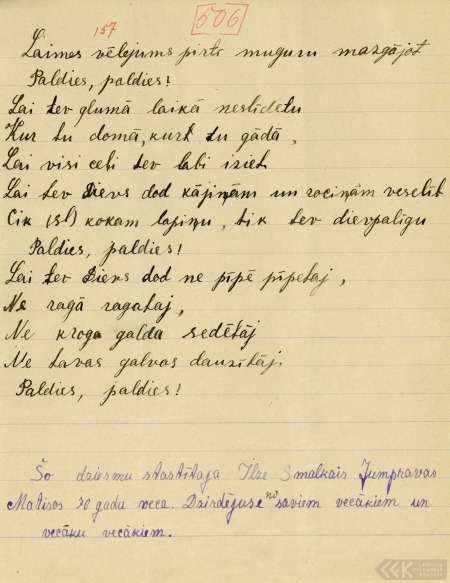 157
606
Laimes vēlejums pirtī muguru mazgājot
Paldies, paldies!
Lai tev glumā laikā neslīdetu
Kur tu domā, kurt tu gādā,
Lai visi ceļi tev labi iziet
Lai tev Dievs dod kājiņām un rociņām veselīb
Cik (šē) kokam lapiņu, tik tev dievpalīgu
Paldies, paldies!
Lai tev Dievs dod ne pīpē pīpetaj,
Ne ragā ragataj,
Ne kroga galda sedētāj
Ne tavas galvas dauzītāj.
Paldies, paldies!
Šo dziesmu stastītaja Ilze Smalkais Jumpravas
Matisos 70 gadu veca. Dzirdējuse no saviem vecākiem un
vecāku vecākiem.